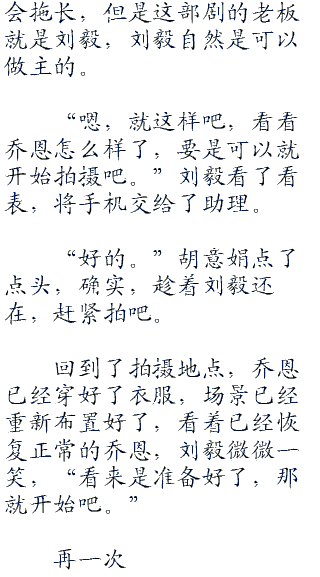 会拖长，但是这部剧的老板
就是刘毅，刘毅自然是可以
做主的。
“嗯，就这样吧，看看
乔恩怎么样了，要是可以就
开始拍摄吧。”刘毅看了看
表，将手机交给了助理。
“好的。”胡意娟点了
点头，确实，趁着刘毅还
在，赶紧拍吧。
回到了拍摄地点，乔恩
已经穿好了衣服，场景已经
重新布置好了，看着已经恢
复正常的乔恩，刘毅微微一
笑，“看来是准备好了，那
就开始吧。”
再一次